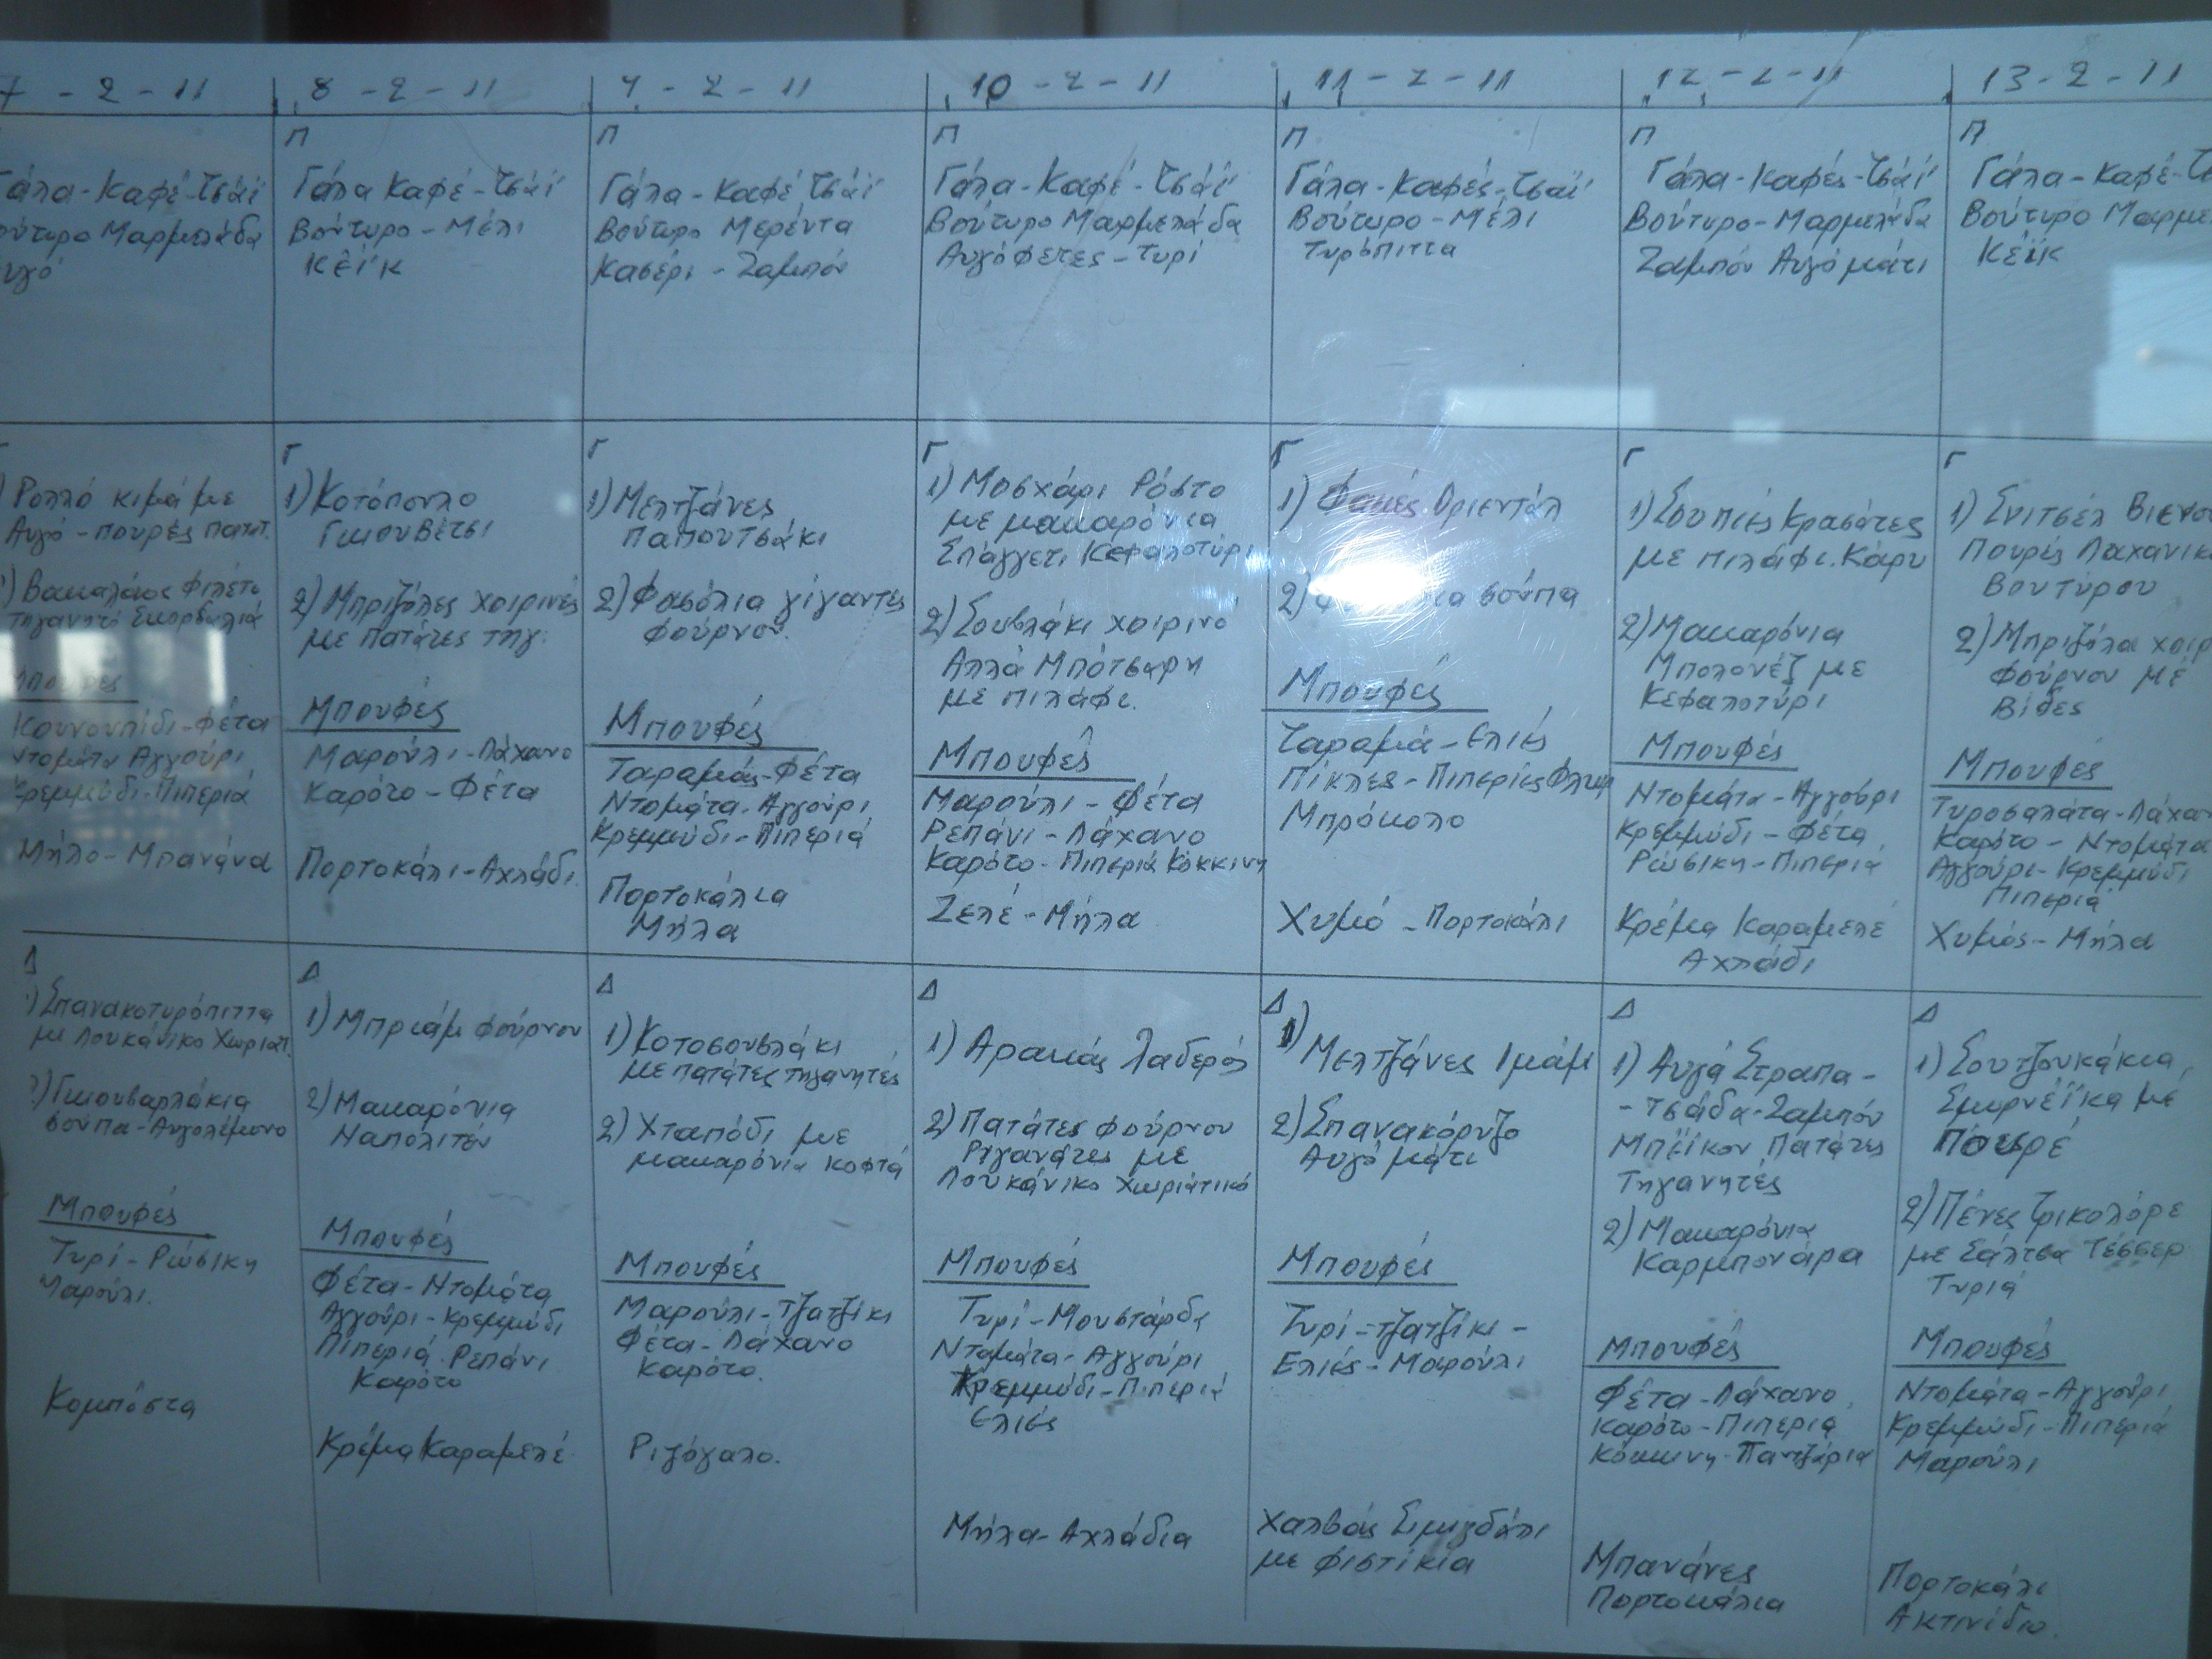 7 - 2 - 11
8 - 2 - 11
9 - 2 - 11
10 - 2 - 11
11 - 2 - 11
12 - 2 - 11
13 - 2 - 11
Γάλα - Καφέ - Τσάϊ
Βούτυρο Μαρμελάδα
Αυγό
Π
Γάλα Καφέ - Τσάϊ
Βούτυρο - Μέλι
Κέϊκ
Π
Γάλα - Καφέ Τσάϊ
Βούτυρο Μερέντα
Κασέρι - Ζαμπόν
Π
Γάλα - Καφέ - Τσάϊ
Βούτυρο Μαρμελάδα
Αυγόφετες - Τυρί
Π
Γάλα - Καφές - Τσάϊ
Βούτυρο - Μέλι
Τυρόπιττα
Π
Γάλα - Καφές - Τσάϊ
Βούτυρο - Μαρμελάδα
Ζαμπόν Αυγό μάτι
Π
Γάλα - Καφέ - Τσ
Βούτυρο Μαρμε
Κέϊκ
Γ
1) Ρολλό κιμά με
Αυγό - πουρές πατατ.
2) Βακαλάος Φιλέτο
τηγανητό Σκορδαλιά
Μπουφές
Κουνουπίδι - Φέτα
Ντομάτα Αγγούρι
Κρεμμύδι - Πιπεριά
Μήλο - Μπανάνα
Γ
1) Κοτόπουλο
Γκιουβέτσι
2) Μπριζόλες χοιρινές
με πατάτες τηγ.
Μπουφές
Μαρούλι - Λάχανο
Καρότο - Φέτα
Πορτοκάλι - Αχλάδι.
Γ
1) Μελτζάνες
Παπουτσάκι
2) Φασόλια γίγαντες
φούρνου.
Μπουφές
Ταραμάς - Φέτα
Ντομάτα - Αγγούρι
Κρεμμύδι - Πιπεριά
Πορτοκάλια
Μήλα
Γ
1) Μοσχάρι Ρόστο
με μακαρόνια
Σπάγγετι Κεφαλοτύρι
2) Σουβλάκι χοιρινό
Αλλά Μπότσαρη
με πιλάφι.
Μπουφές
Μαρούλι - Φέτα
Ρεπάνι - Λάχανο
Καρότο - Πιπεριά Κόκκινη
Ζελέ - Μήλα
Γ
1) Φακές Οριεντάλ
2) σούπα
Μπουφές
Ταραμά - Ελιές
Πίκλες - Πιπεριές
Μπρόκολο
Χυμό - Πορτοκάλι
Γ
1) Σουπιές Κρασάτες
με πιλάφι. Κάρυ
2) Μακαρόνια
Μπολονέζ με
Κεφαλοτύρι
Μπουφές
Ντομάτα - Αγγούρι
Κρεμμύδι - Φέτα
Ρώσικη - Πιπεριά
Κρέμα Καραμελέ
Αχλάδι
Γ
1) Σνιτσέλ Βιενου
Πουρές Λαχανικ
Βουτύρου
2) Μπριζόλα χοιρ
φούρνου με
Βίδες
Μπουφές
Τυροσαλάτα - Λάχαν
Καρότο - Ντομάτα
Αγγούρι - Κρεμμύδι
Πιπεριά
Χυμός - Μήλα
Δ
1) Σπανακοτυρόπιττα
με Λουκάνικο Χωριατ.
2) Γκιουβαρλάκια
σούπα - Αυγολέμονο
Μπουφές
Τυρί - Ρώσικη
Μαρούλι.
Κομπόστα
Δ
1) Μπριάμ φούρνου
2) Μακαρόνια
Ναπολιτέν
Μπουφές
Φέτα - Ντομάτα
Αγγούρι - Κρεμμύδι
Πιπεριά Ρεπάνι
Καρότο
Κρέμα Καραμελέ
Δ
1) Κοτοσουβλάκι
με πατάτες τηγανητές
2) Χταπόδι με
μακαρόνια κοφτά
Μπουφές
Μαρούλι - Τζατζίκι
Φέτα - Λάχανο
Καρότο.
Ριζόγαλο.
Δ
1) Αρακάς λαδερός
2) Πατάτες φούρνου
Ριγανάτες με
Λουκάνικο Χωριάτικο
Μπουφές
Τυρί - Μουστάρδα
Ντομάτα - Αγγούρι
Κρεμμύδι - Πιπεριά
Ελιές
Μήλα - Αχλάδια
Δ
1) Μελτζάνες Ιμάμ
2) Σπανακόρυζο
Αυγό μάτι
Μπουφές
Τυρί - τζατζίκι -
Ελιές - Μαρούλι
Χαλβάς Σιμιγδάλι
με φιστίκια
Δ
1) Αυγά Στραπα -
- τσάδα - Ζαμπόν
Μπέϊκον Πατάτες
Τηγανητές
2) Μακαρόνια
Καρμπονάρα
Μπουφές
Φέτα - Λάχανο
Καρότο - Πιπεριά
Κόκκινη - Παντζάρια
Μπανάνες
Πορτοκάλια
Δ
1) Σουτζουκάκια
Σμυρνέϊκα με
Πουρέ
2) Πένες Τρικολόρε
με Σάλτσα Τέσσερ
Τυριά
Μπουφές
Ντομάτα - Αγγούρι
Κρεμμύδι - Πιπεριά
Μαρούλι
Πορτοκάλι
Ακτινίδιο.